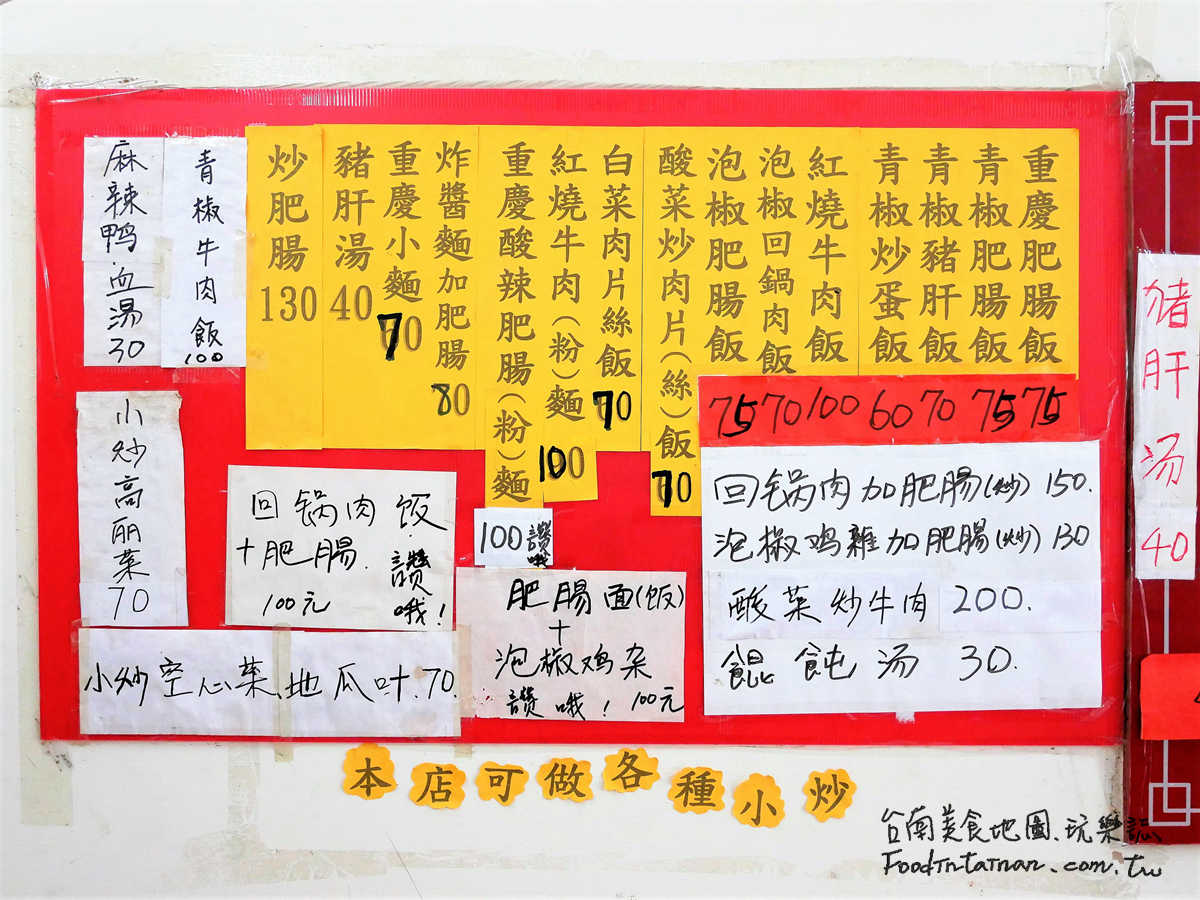 重慶肥腸飯 75
青椒肥腸飯 75
青椒豬肝飯 70
青椒炒蛋飯 60
紅燒牛肉飯 100
泡椒回鍋肉飯 70
泡椒肥腸飯 75
酸菜炒肉片(絲)飯 70
白菜肉片絲飯 70
紅燒牛肉(粉)麵 100
重慶酸辣肥腸(粉)麵
100讚哦
炸醬麵加肥腸 80
重慶小麵 70
豬肝湯 40
炒肥腸 130
青椒牛肉飯 100
麻辣鸭血湯 30
小炒高丽菜 70
回锅肉饭
+肥腸.讚哦!
100元
小炒空心菜、地瓜叶.70.
肥腸面(饭)
+
泡椒鸡杂
讚哦! 100元
回锅肉加肥腸(炒) 150.
泡椒鸡雜加肥腸(炒) 130
酸菜炒牛肉 200.
餛飩汤 30.
猪肝汤40
本店可做各種小炒
台南美食地圖.玩樂誌
FoodInTainan.com.tw